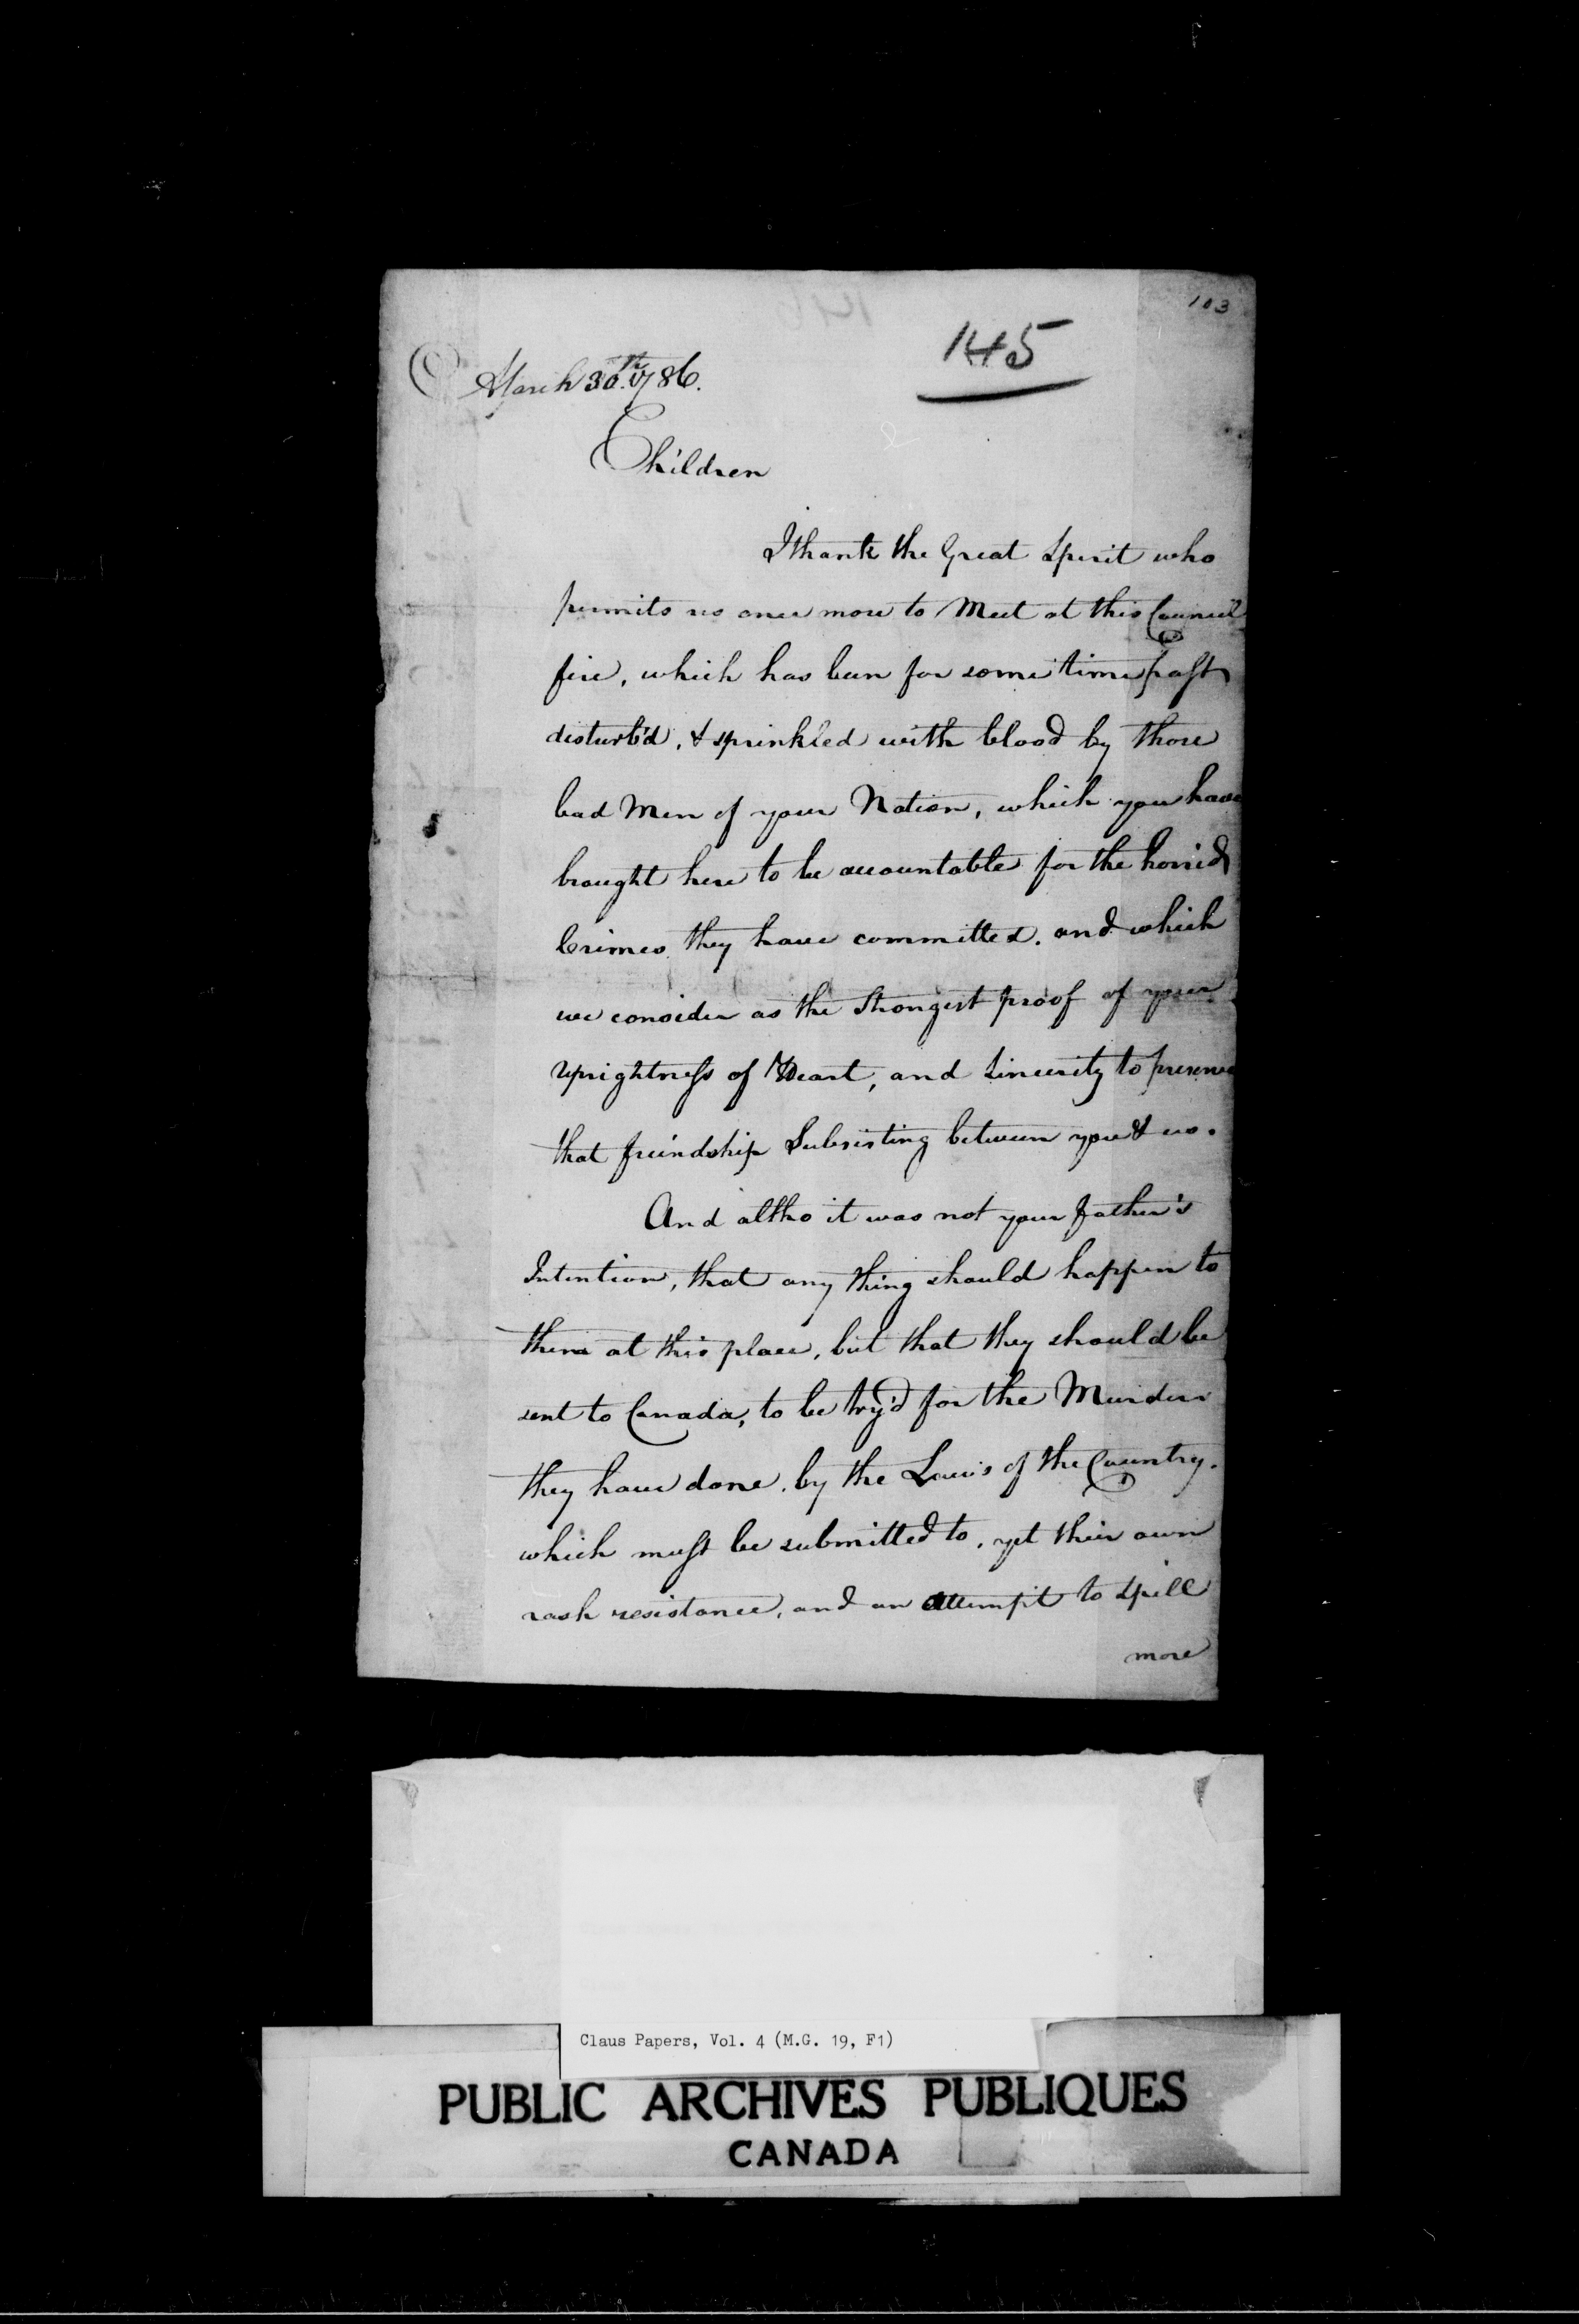 103
145
March 30th. 1786.
Children
I thank the Great Spirit who
permits us once more to Meet at this Council
fire, which has been for some time past
disturb'd, & sprinkled with blood by those
bad Men of your Nation, which you have
brought here to be accountable for the horrid
Crimes they have committed. and which
we consider as the Strongest proof of your
Uprightness of Heart, and Sincerity to preserve
that friendship Subsisting between you & us.
And altho it was not your father's
Intention, that any thing should happen to
them at this place, but that they should be
sent to Canada, to be try'd for the Murders
they have done. by the Laws of the Country.
which must be submitted to, yet their own
rash resistance, and an attempt to spill
more
Claus Papers, Vol. 4 (M.G. 19, F1)
PUBLIC ARCHIVES PUBLIQUES
CANADA